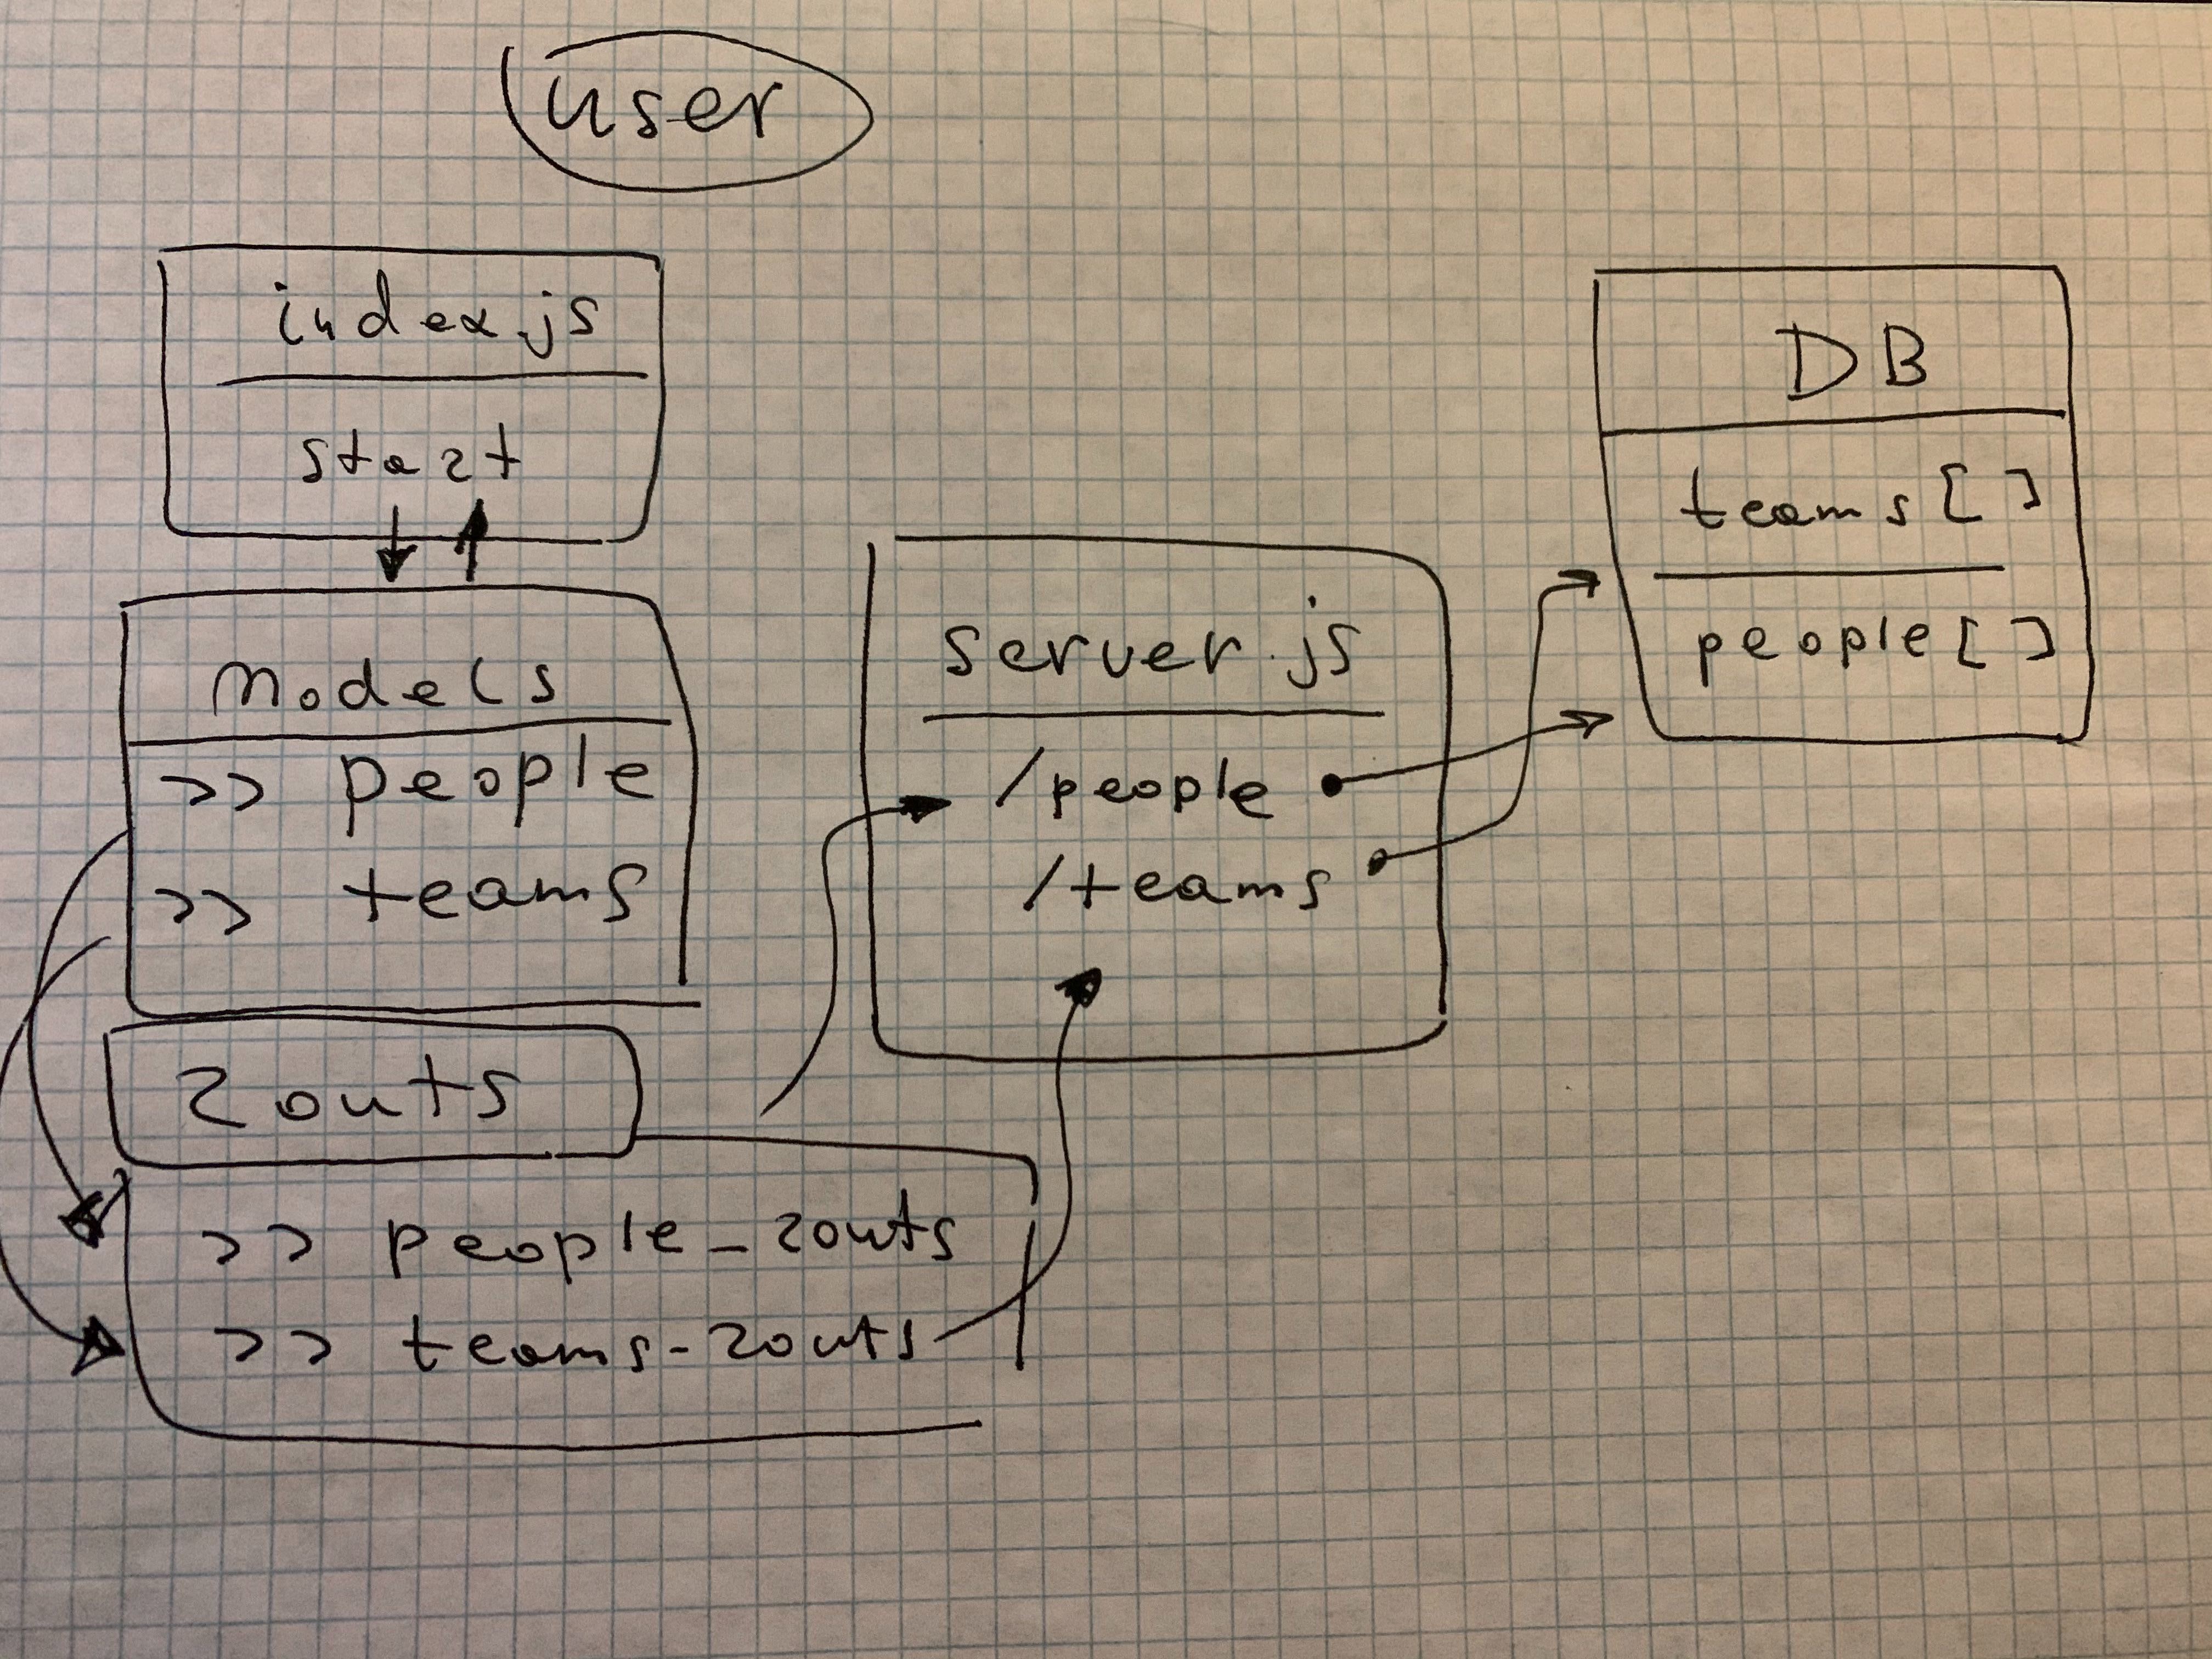 user
index.js
start
Models
>> people
>> teams
routs
>> people_routs
>> teams-routs
server.js
/people
/teams
DB
teams[]
people[]